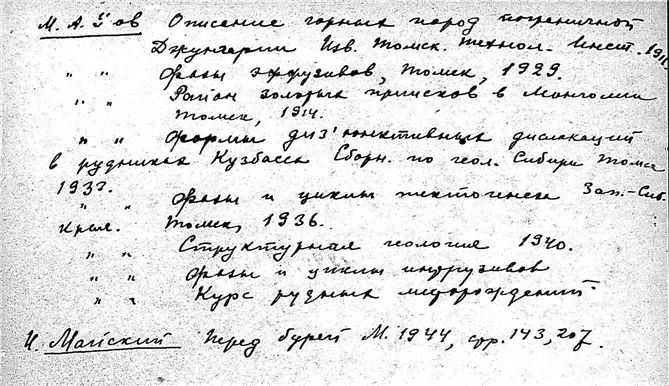 М. А. У ов Описание горных пород пограничной
Джунгарии Изв. Томск. Технол. Инст. 1911.
„ „ Фазы эффузивов, Томск, 1929.
„ „ Район золотых приисков в Монголии
Томск, 1914.
„ „ Формы диз'юнктивных дислокаций
в рудниках Кузбасса Сборн. по геол. Сибири Томск
1933.
„ „ Фазы и циклы тектогенеза Зап.-Сиб.
Края. Томск, 1936.
„ „ Структурная геология 1940.
„ „ Фазы и циклы интрузивов
„ „ Курс рудных месторождений.
И. Майский Перед бурей М. 1944, стр. 143, 207.